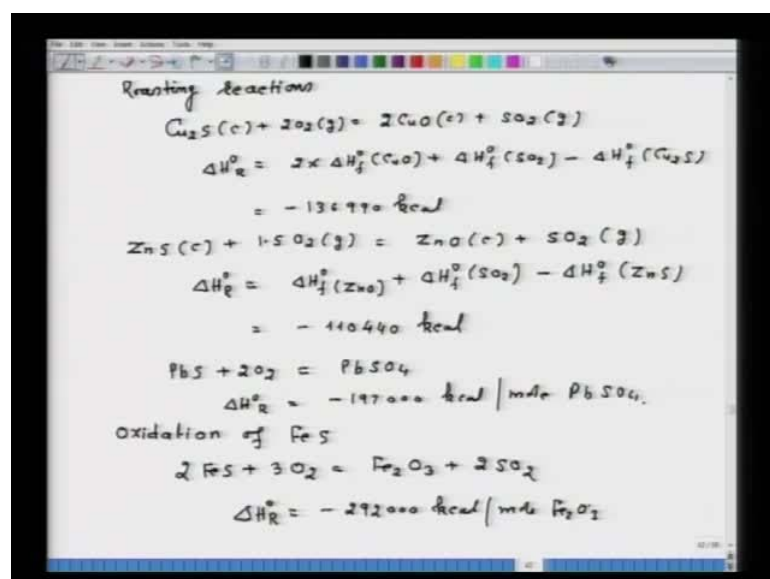 File Edit View Insert Actions Tools Help
Roasting reactions
Cu₂S(c) + 2O₂(g) = 2CuO(c) + SO₂(g)
ΔH°R = 2× ΔH°f(CuO) + ΔH°f(SO₂) − ΔH°f(Cu₂S)
= − 136990 kcal
ZnS(c) + 1.5O₂(g) = ZnO(c) + SO₂(g)
ΔH°R = ΔH°f(ZnO) + ΔH°f(SO₂) − ΔH°f(ZnS)
= − 110440 kcal
PbS + 2O₂ = PbSO₄
ΔH°R = − 197000 kcal | mole PbSO₄.
Oxidation of FeS
2 FeS + 3O₂ = Fe₂O₃ + 2SO₂
ΔH°R = − 292000 kcal | mole Fe₂O₃